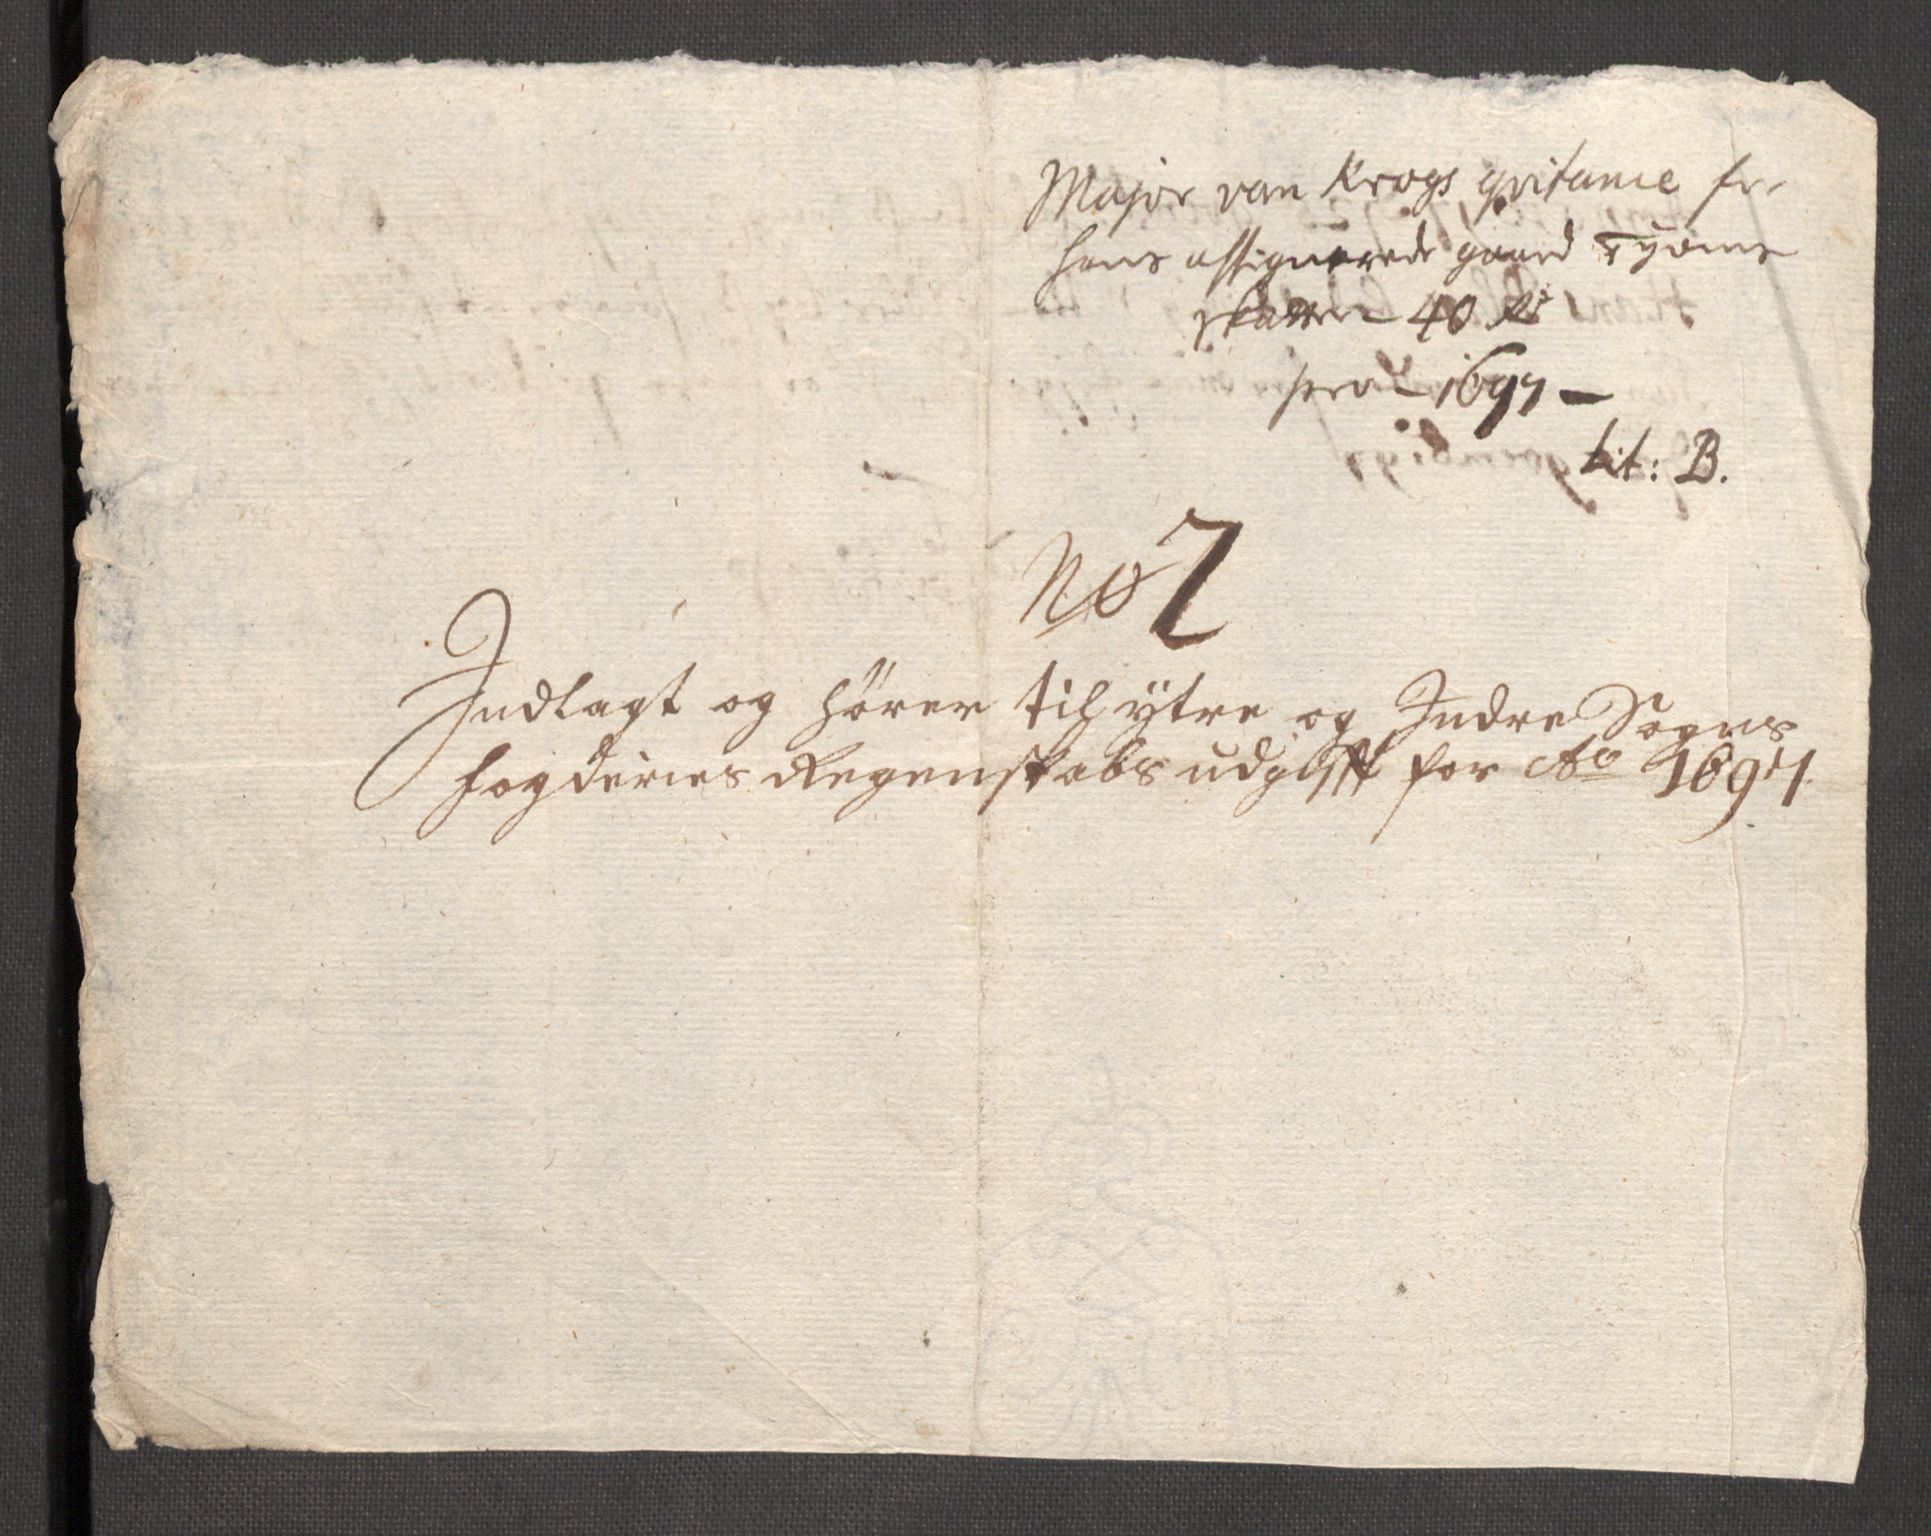 Major von Krogs qvitanie for
hans assignerede gaard Tyoms
skatter 40 Rd
pro 1697 –
Lit: B.
No 7
Indlagt og hörer til ÿtre og Indre Sogns
fogderies Regenskabs udgifft for Ao 1697.